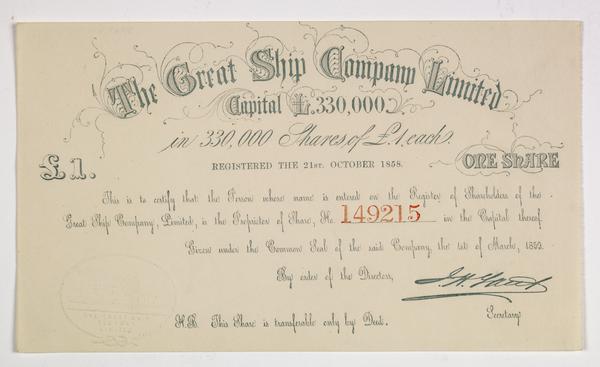 The Great Ship Company Limited
Capital £.330,000.
in 330,000 Shares, of £.1, each.
REGISTERED THE 21ST. OCTOBER 1858.
£1. ONE SHARE
This is to certify that the Person whose name is entered on the Register of Shareholders of the
Great Ship Company, Limited, is the Proprietor of Share, No. 149215 in the Capital thereof
Given under the Common Seal of the said Company, the 1st of March, 1859.
By order of the Directors,
Secretary
N.B. This Share is transferable only by Deed.